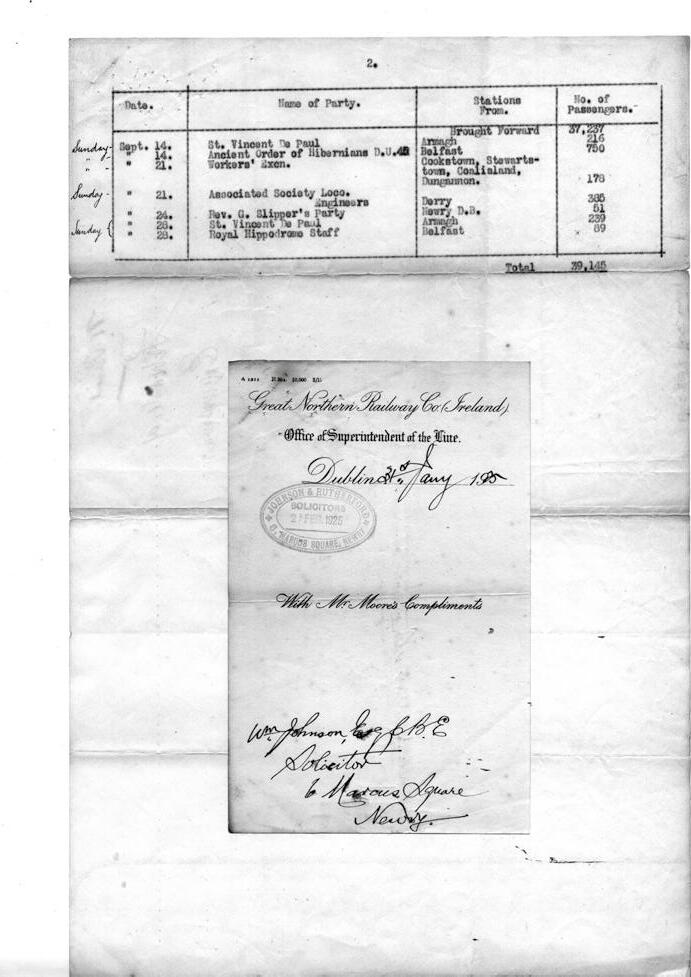 2.
Date. Name of Party. Stations From. No. of Passengers.
Brought Forward 37,237
Sunday - Sept. 14. St. Vincent De Paul Armagh 216
" - " 14. Ancient Order of Hibernians D.U.45 Belfast 750
" 21. Workers' Excn. Cookstown, Stewarts-
town, Coalisland,
Dungannon. 178
Sunday - " 21. Associated Society Loco.
Engineers Derry 385
" 24. Rev. G. Slipper's Party Newry D.B. 51
Sunday { " 28. St. Vincent De Paul Armagh 239
" 28. Royal Hippodrome Staff Belfast 89
Total 39,145
Great Northern Railway Co. (Ireland)
Office of Superintendent of the Line.
Dublin 31st Jany 1925
JOHNSON & RUTHERFORD
SOLICITORS
2 FEB. 1925
6, MARCUS SQUARE, NEWRY
With Mr Moore's Compliments
Wm Johnson, Esq C.B.E
Solicitor
6 Marcus Square
Newry.